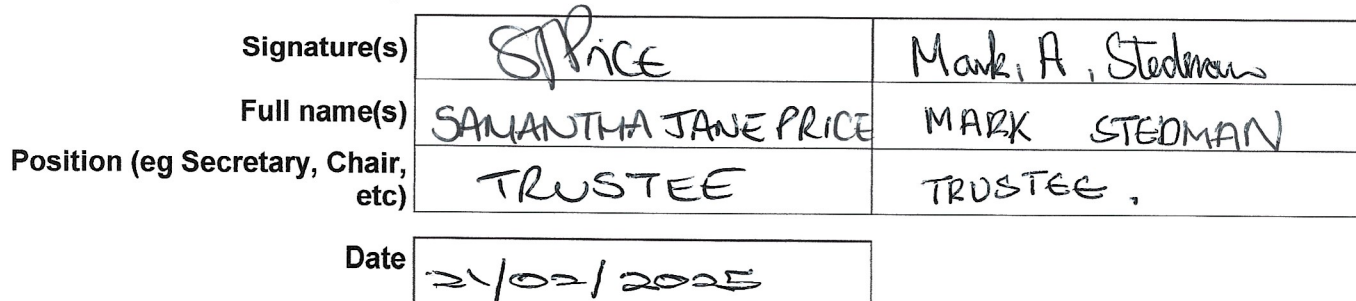 Signature(s) SJPrice Mark, A, Stedman
Full name(s) SAMANTHA JANE PRICE MARK STEDMAN
Position (eg Secretary, Chair,
etc) TRUSTEE TRUSTEE.
Date 21/02/2025